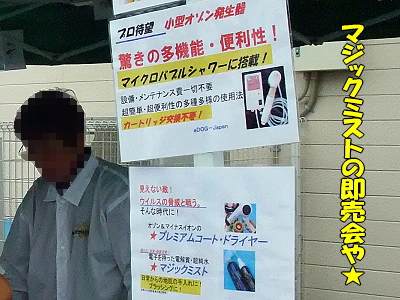 プロ待望 小型オゾン発生器
驚きの多機能・便利性！
マイクロバブルシャワーに搭載！
設備・メンテナンス費一切不要
超簡単・超便利性の多種多様の使用法
カートリッジ交換不要！
eDOG-Japan
見えない敵！
ウイルスの脅威と戦う。
そんな時代に！
オゾン＆マイナスイオンの
★プレミアムコート・ドライヤー
電子を持った電解質・超純水
★マジックミスト
日常からの地肌の手入れに！
ブラッシングに！
マジックミストの即売会や★